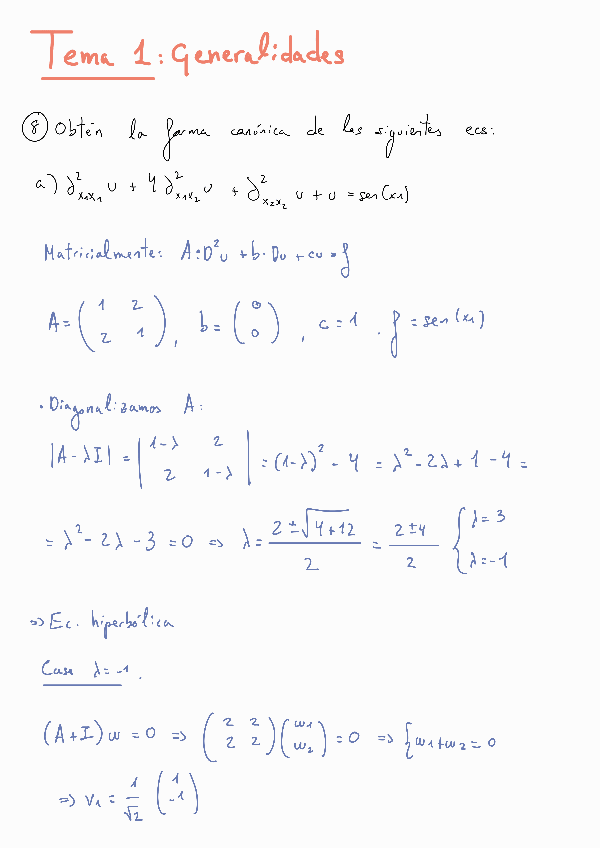 Tema 1: Generalidades
⑧ Obtén la forma canónica de las siguientes ecs:
a) ∂²ₓ₁ₓ₁ u + 4 ∂²ₓ₁ₓ₂ u + ∂²ₓ₂ₓ₂ u + u = sen(x₁)
Matricialmente: A:D²u + b·Du + cu = f
A = (1 2; 2 1), b = (0; 0), c = 1, f = sen(x₁)
· Diagonalizamos A:
|A - λI| = |1-λ 2; 2 1-λ| = (1-λ)² - 4 = λ² - 2λ + 1 - 4 =
= λ² - 2λ - 3 = 0 ⇒ λ = (2 ± √(4+12))/2 = (2 ± 4)/2 { λ = 3; λ = -1
⇒ Ec. hiperbólica
Caso λ = -1.
(A+I)w = 0 ⇒ (2 2; 2 2)(w₁; w₂) = 0 ⇒ {w₁+w₂ = 0
⇒ v₁ = 1/√2 (1; -1)